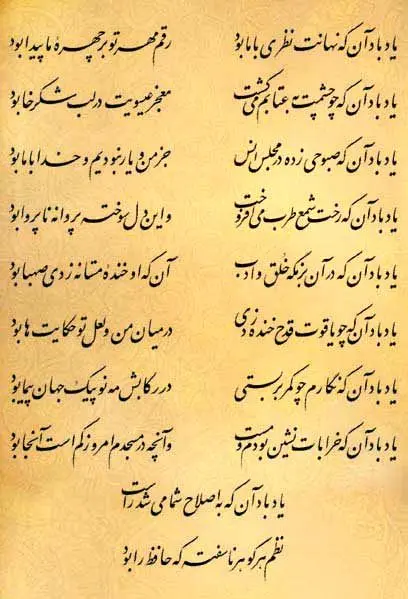 یاد باد آن که نهانت نظری با ما بود رقم مهر تو بر چهرهٔ ما پیدا بود
یاد باد آن که چو چشمت به عتابم می‌کشت معجز عیسویت در لب شکرخا بود
یاد باد آن که صبوحی زده در مجلس انس جز من و یار نبودیم و خدا با ما بود
یاد باد آن که رخت شمع طرب می‌افروخت و این دل سوخته پروانه ناپروا بود
یاد باد آن که در آن بزمگه خُلق و ادب آن که او خندهٔ مستانه زدی صهبا بود
یاد باد آن که چو یاقوت قدح خنده زدی در میان من و لعل تو حکایت ها بود
یاد باد آن که نگارم چو کمر بربستی در رکابش مه نو پیک جهان پیما بود
یاد باد آن که خرابات نشین بودم و مست وآنچه در مسجدم امروز کم است آنجا بود
یاد باد آن که به اصلاح شما می شد راست
نظم هر گوهر ناسفته که حافظ را بود